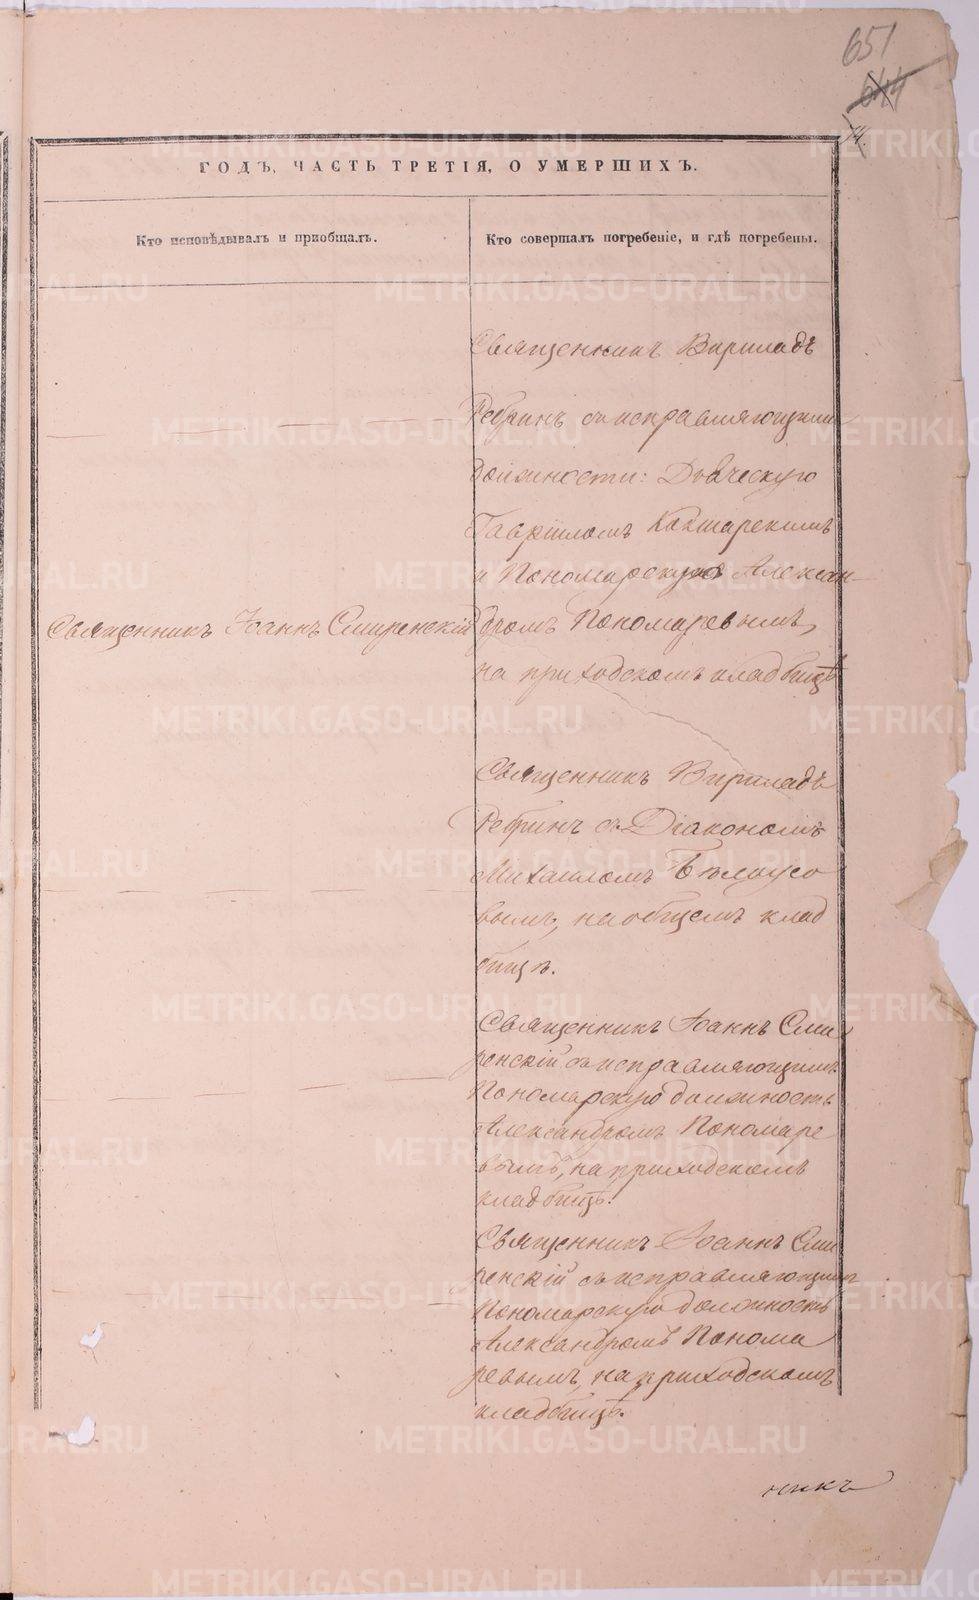 651
644
14.
ГОДЪ, ЧАСТЬ ТРЕТІЯ, О УМЕРШИХЪ.
Кто исповѣдывалъ и пріобщалъ.
Кто совершалъ погребеніе, и гдѣ погребены.
Священникъ Іоаннъ Смиренскій
Священникъ
Ребринъ съ исправляющими
должности: Дьяческую
Гавріиломъ
и Пономарскую Алексан-
дромъ Пономаревымъ,
на приходскомъ кладбищѣ
Священникъ
Ребринъ съ Діакономъ
Михаиломъ Бѣлоусо
вымъ, на общемъ клад
бищѣ.
Священникъ Іоаннъ Сми
ренскій съ исправляющимъ
Пономарскую должность
Александромъ Пономаре
вымъ, на приходскомъ
кладбищѣ.
Священникъ Іоаннъ Сми
ренскій съ исправляющимъ
Пономарскую должность
Александромъ Понома
ревымъ, на приходскомъ
кладбищѣ.
никъ
METRIKI.GASO-URAL.RU